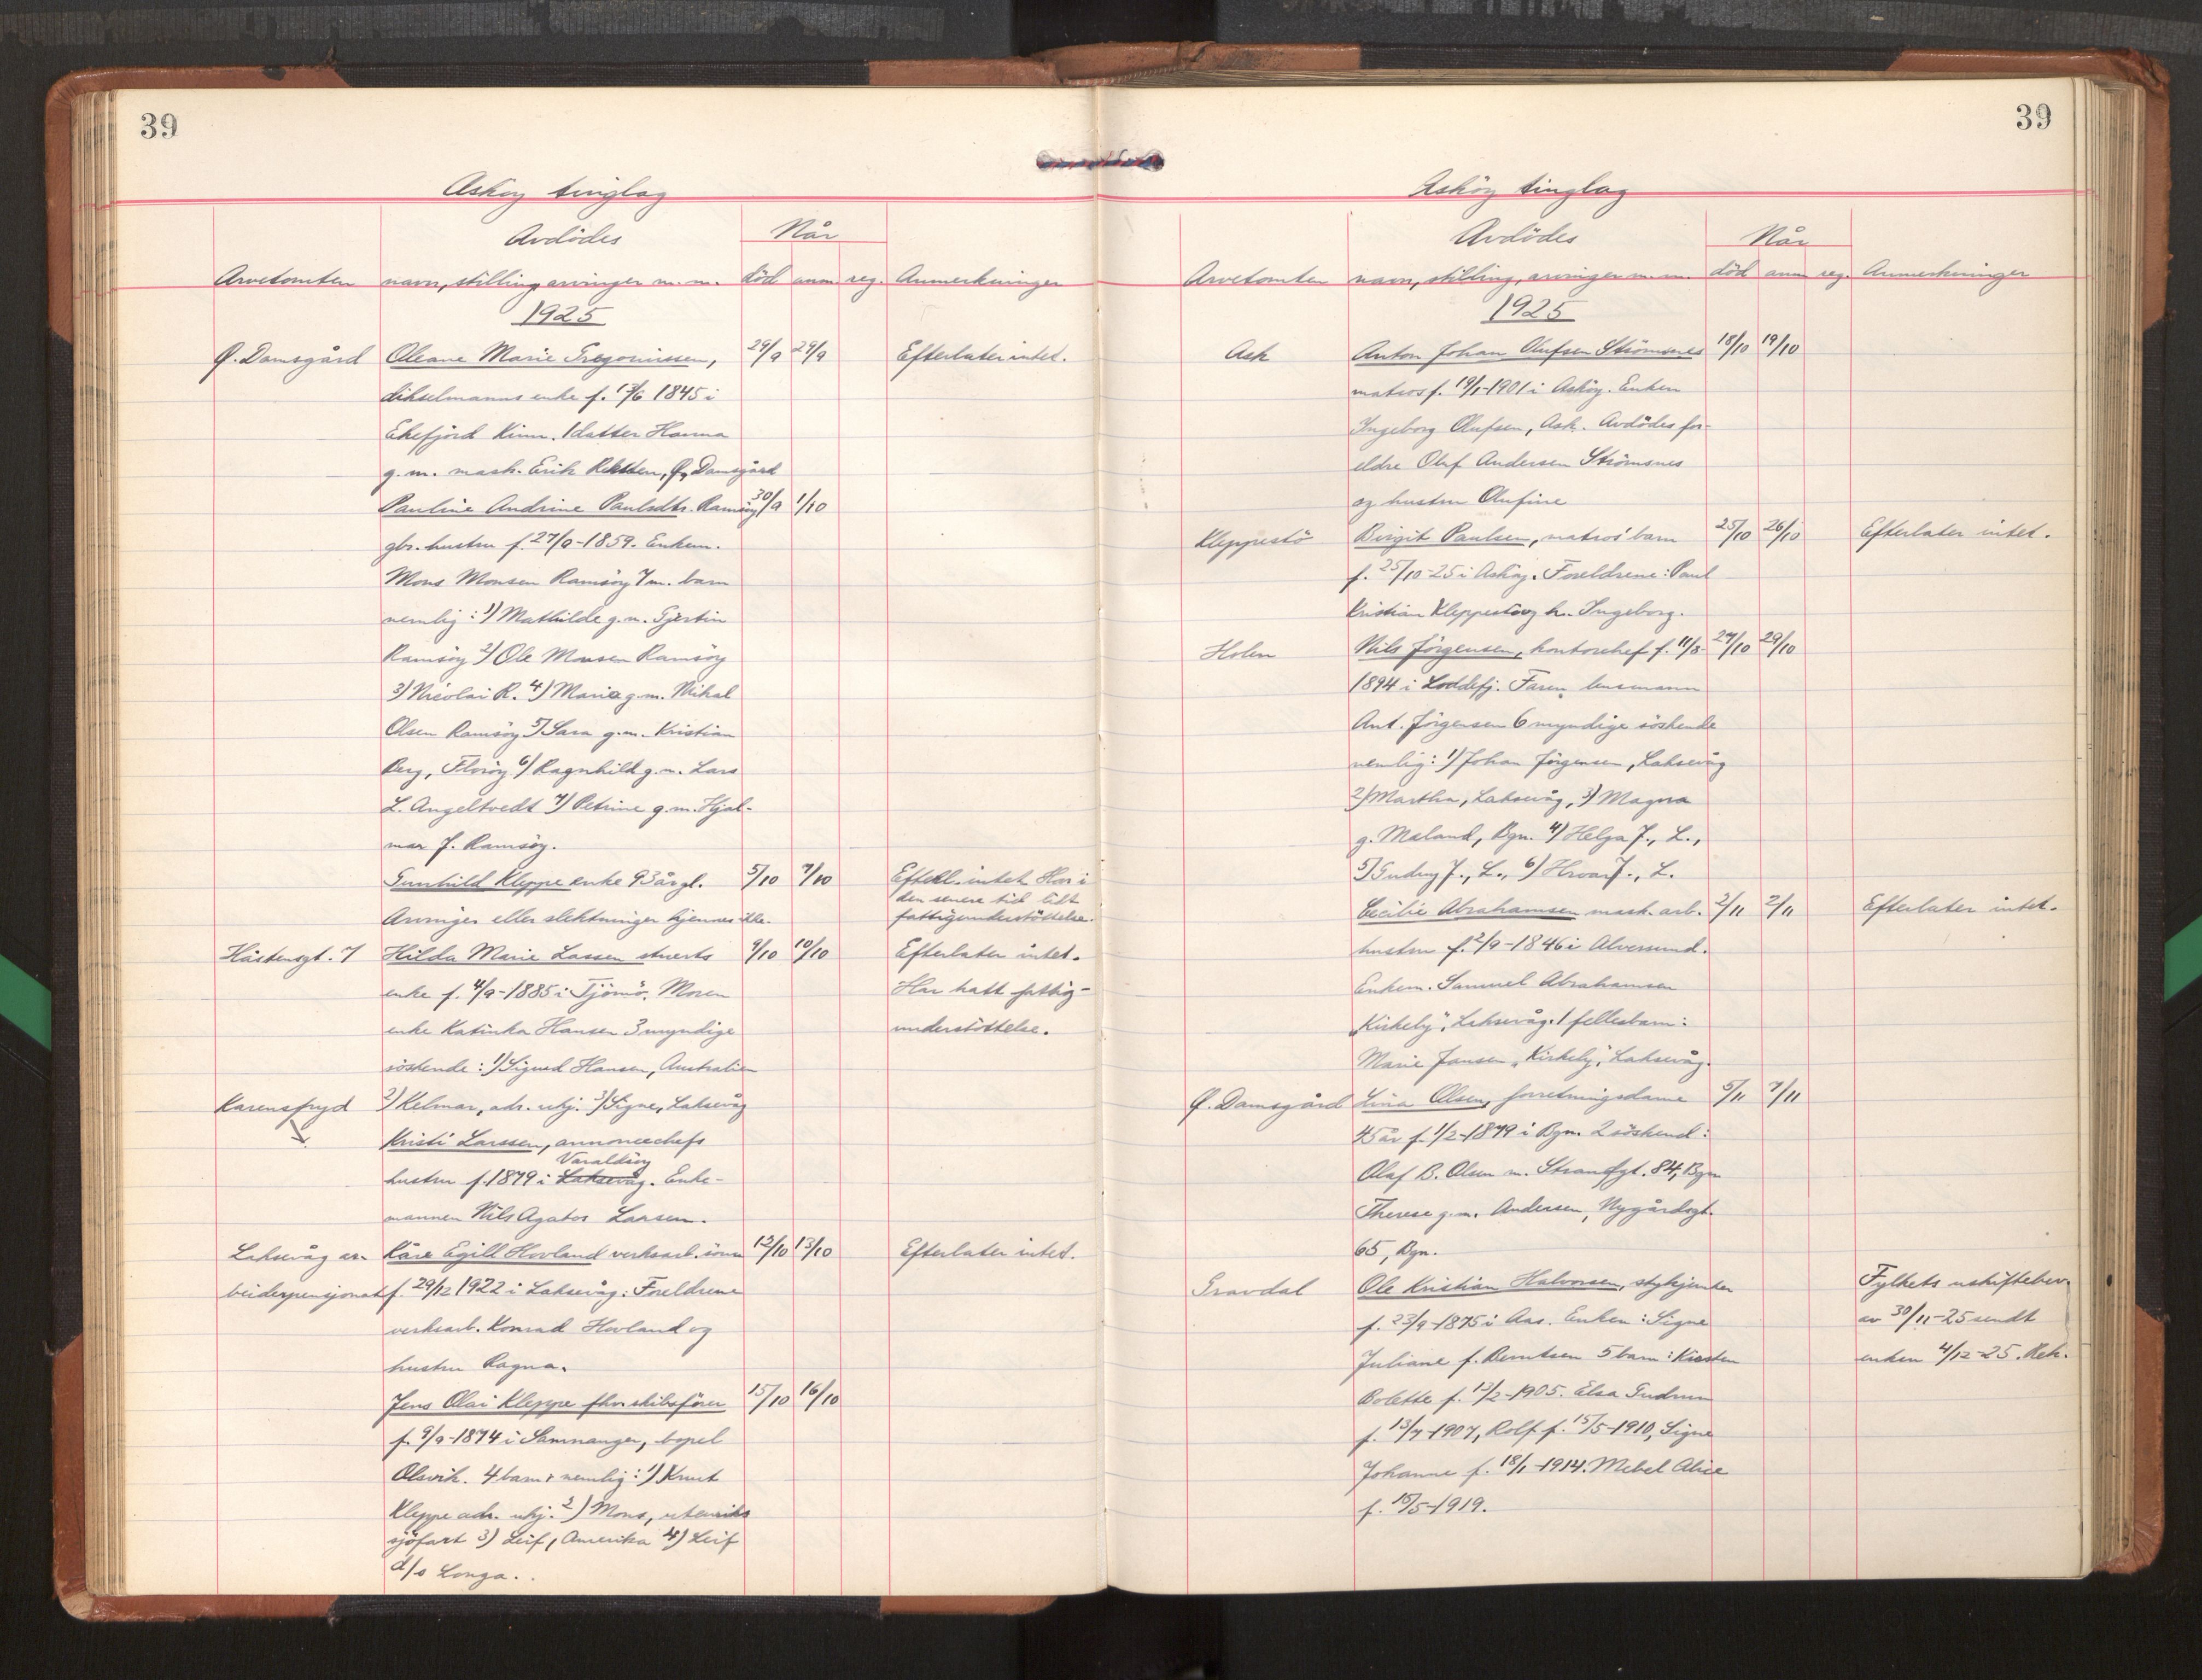 39
Askøy tinglag
Avdödes
Når
Arvetomten navn, stilling arvinger m.m. död anm reg. Anmerkninger
1925
Ø. Damsgård Oleane Marie Gregoriussen, 29/9 29/9 Efterlater intet.
dikselmanns enke f. 17/6 1845 i
Eikefjord Kinn. 1 datter Hanna
g.m. mask. Erik Rektben, Ø. Damsgård
Pauline Andrine Paulsdtr. Ramsöy 30/9 1/10
gbr. hustru f. 27/9-1859. Enkem.
Mons Monsen Ramsöy 7 m. barn
nemlig: 1) Mathilde g.m. Gjertin
Ramsöy 2) Ole Monsen Ramsöy
3) Nicolai R. 4) Marie g.m. Mikal
Olsen Ramsöy 5) Sara g.m. Kristian
Berg, Floröy 6) Ragnhild g.m. Lars
L. Angeltvedt 7) Petrine g.m. Hjal-
mar J. Ramsöy.
Gunhild Kleppe enke 93 år gl. 5/10 7/10 Efterl. intet Har i
den senere tid litt
Arvinger eller slektninger kjennes ikke. fattigunderstöttelse.
Håstensgt. 7 Hilda Marie Lassen stuerts 9/10 10/10 Efterlater intet.
enke f. 4/9-1885 i Tjömö. Moren Har hatt fattig-
enke Katinka Hansen 3 myndige understöttelse.
söskende: 1) Sigurd Hansen, Australien
Karensfryd 2) Kelmar, adr. ukj. 3) Signe, Laksevåg
Kristi Larssen, annoncechefs
Varaldsöy
hustru f. 1879 i Laksevåg. Enke-
mannen Nils Agatos Larsen.
Laksevåg ar- Kåre Egill Hovland verksarb. sönn 12/10 13/10 Efterlater intet.
beiderpensjonat f. 29/12 1922 i Laksevåg: Foreldrene
verksarb. Konrad Hovland og
hustru Ragna.
Jens Olai Kleppe fhv. skibsförer 15/10 16/10
f. 9/9-1874 i Samnanger, bopel
Olsvik. 4 barn nemlig: 1) Knut
Kleppe adr. ukj. 2) Mons, utenriks
sjöfart 3) Leif, Amerika 4) Leif
d/s Longa.
39
Asköy tinglag
Avdödes
Når
Arvetomten navn, stilling, arvinger m.m. död anm reg. Anmerkninger
1925
Ask Anton Johan Olufsen Strömsnes 18/10 19/10
matros f. 19/1-1901 i Asköy. Enken
Ingeborg Olufsen, Ask. Avdödes for-
eldre Oluf Andersen Strömsnes
og hustru Olufine
Kleppestö Birgit Paulsen, matros' barn 25/10 26/10 Efterlater intet.
f. 25/10-25 i Asköy. Foreldrene: Paul
Kristian Kleppestö og h. Ingeborg.
Holen Nils Jörgensen, kontorchef f. 11/8- 27/10 29/10
1894 i Loddefj. Faren lensmann
Ant. Jörgensen 6 myndige söskende
nemlig: 1) Johan Jörgensen, Laksevåg
2) Martha, Laksevåg, 3) Magna
g. Maland, Bgn. 4) Helga J., L.,
5) Gudny J., L., 6) Hroar J., L.
Cecilie Abrahamsen mask. arb. 2/11 2/11 Efterlater intet.
hustru f. 2/9-1846 i Alversund.
Enkem. Samuel Abrahamsen
"Kirkely", Laksevåg. 1 fellesbarn:
Marie Jansen "Kirkely", Laksevåg.
Ø. Damsgård Lina Olsen, forretningsdame 5/11 7/11
45 år f. 1/2-1879 i Bgn. 2 söskend:
Olaf B. Olsen m. Strandgt. 84, Bgn
Therese g.m. Andersen, Nygårdsgt.
65, Bgn.
Gravdal Ole Kristian Halvorsen, stykjunker Fylkets uskiftebev.
f. 23/9-1875 i Aas. Enken: Signe av 30/11-25 sendt
Juliane f. Berntsen 5 barn: Kirsten enken 4/12-25. Rek.
Bolette f. 13/2-1905. Elsa Gudrun
f. 13/7-1907, Rolf f. 15/5-1910, Signe
Johanne f. 18/1-1914. Mebel Alice
f. 15/5-1919.